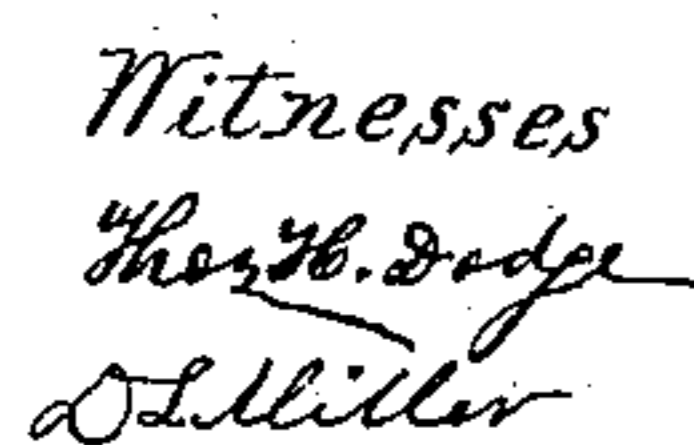 Witnesses
Thos H. Dodge
D L Miller